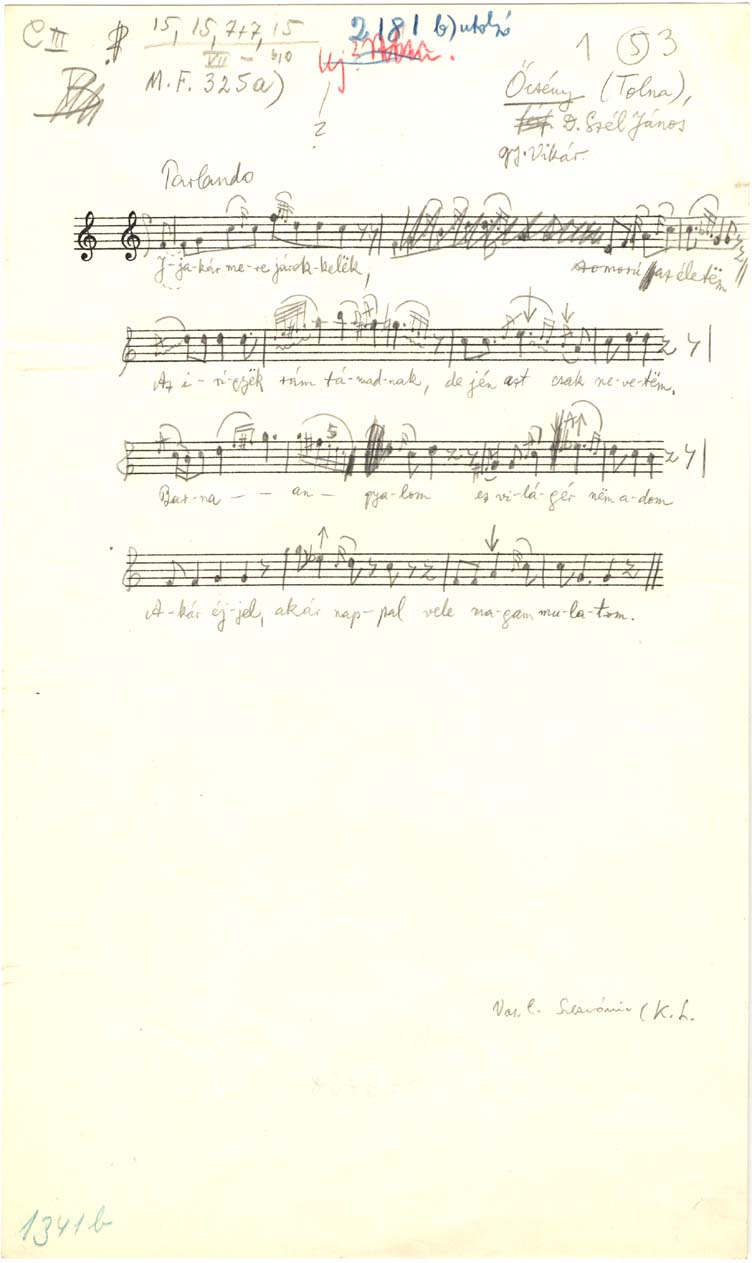 C III 15, 15, 7+7, 15 2181 b) utolsó
VII – b10 Uj 1 5 3
M. F. 325a) Őcsény (Tolna),
? D. Szél János
gy. Vikár.
Parlando
I-ja-kár me-re járok-kelëk, szomorú az életëm
Az i-ri-gyëk rám tá-mad-nak, de jén ast csak ne-ve-tëm.
Bar-na – – an – gya-lom ez vi-lá-gér nëm a-dom
5
A-kár éj-jel, akár nap-pal vele ma-gam mu-la-tom.
Var. l. (K. L.
1341b